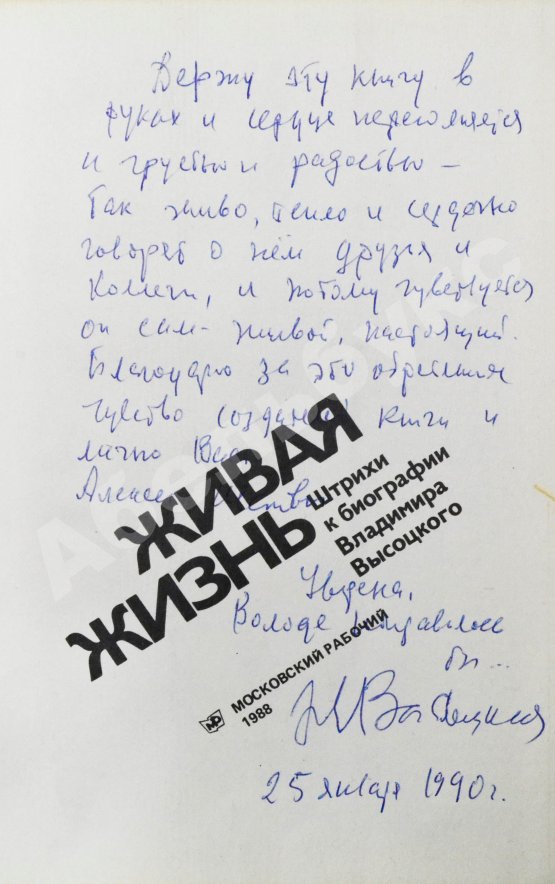 Держу эту книгу в
руках и сердце переполняется
и грустью и радостью –
Так живо, тепло и сердечно
говорят о нём друзья и
коллеги, и потому чувствуется
он сам – живой, настоящий.
Благодарю за это обретённое
чувство создателей книги и
лично Вас,
ЖИВАЯ
ЖИЗНЬ
Штрихи
к биографии
Владимира
Высоцкого
Уверена,
Володе понравилось
бы...
МОСКОВСКИЙ РАБОЧИЙ
1988
25 января 1990 г.